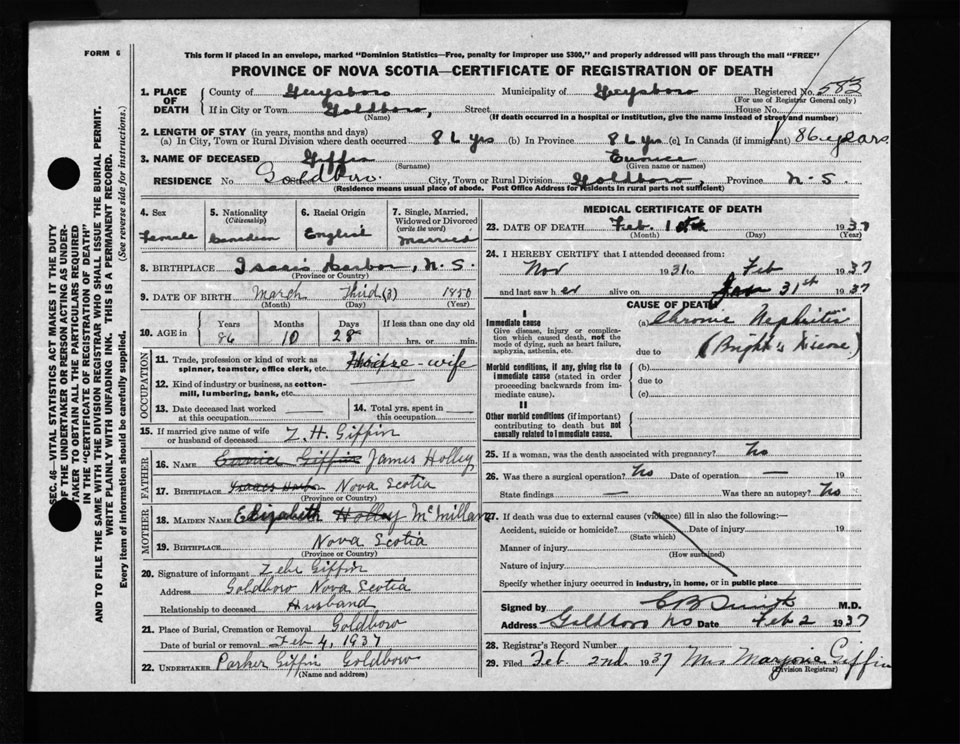 FORM 6
This form if placed in an envelope, marked "Dominion Statistics—Free, penalty for improper use $300," and properly addressed will pass through the mail "FREE"
PROVINCE OF NOVA SCOTIA—CERTIFICATE OF REGISTRATION OF DEATH
SEC. 46—VITAL STATISTICS ACT MAKES IT THE DUTY
OF THE UNDERTAKER OR PERSON ACTING AS UNDER-
TAKER TO OBTAIN ALL THE PARTICULARS REQUIRED
IN THE "CERTIFICATE OF REGISTRATION OF DEATH"
AND TO FILE THE SAME WITH THE DIVISION REGISTRAR WHO SHALL ISSUE THE BURIAL PERMIT.
WRITE PLAINLY WITH UNFADING INK. THIS IS A PERMANENT RECORD.
Every item of information should be carefully supplied. (See reverse side for instructions.)
1. PLACE OF DEATH
County of Guysboro Municipality of Guysboro Registered No. 583
(For use of Registrar General only)
If in City or Town Goldboro, Street House No.
(Name) (If death occurred in a hospital or institution, give the name instead of street and number)
2. LENGTH OF STAY (in years, months and days)
(a) In City, Town or Rural Division where death occurred 86 yrs (b) In Province 86 yrs (c) In Canada (if immigrant) 86 years
3. NAME OF DECEASED Giffin Eunice
(Surname) (Given name or names)
RESIDENCE No Goldboro Street City, Town or Rural Division Goldboro, Province N.S.
(Residence means usual place of abode. Post Office Address for residents in rural parts not sufficient)
4. Sex
Female
5. Nationality
(Citizenship)
Canadian
6. Racial Origin
English
7. Single, Married, Widowed or Divorced
(write the word)
Married
8. BIRTHPLACE Isaacs Harbor, N.S.
(Province or Country)
9. DATE OF BIRTH March Third (3) 1850
(Month) (Day) (Year)
10. AGE in
Years Months Days If less than one day old
86 10 28 hrs. or min.
OCCUPATION
11. Trade, profession or kind of work as
spinner, teamster, office clerk, etc. House-wife
12. Kind of industry or business, as cotton-
mill, lumbering, bank, etc.
13. Date deceased last worked
at this occupation
14. Total yrs. spent in
this occupation
15. If married give name of wife
or husband of deceased Z. H. Giffin
FATHER
16. NAME Eunice Giffin James Holley
17. BIRTHPLACE Isaacs Harbor Nova Scotia
(Province or Country)
MOTHER
18. MAIDEN NAME Elizabeth Holley McMillan
19. BIRTHPLACE Nova Scotia
(Province or Country)
20. Signature of informant Zebe Giffin
Address Goldboro Nova Scotia
Relationship to deceased Husband
21. Place of Burial, Cremation or Removal Goldboro
Date of burial or removal Feb 4, 1937
22. UNDERTAKER Parker Giffin Goldboro
(Name and address)
MEDICAL CERTIFICATE OF DEATH
23. DATE OF DEATH Feb. 1937
(Month) (Day) (Year)
24. I HEREBY CERTIFY that I attended deceased from:
Nov 1931 to Feb 1937
and last saw her alive on Jan 31st 1937
CAUSE OF DEATH
I
Immediate cause
Give disease, injury or complica-
tion which caused death, not the
mode of dying, such as heart failure,
asphyxia, asthenia, etc.
(a) Chronic Nephritis
due to (Bright's Disease)
Morbid conditions, if any, giving rise to
immediate cause (stated in order
proceeding backwards from im-
mediate cause).
(b)
due to
(c)
II
Other morbid conditions (if important)
contributing to death but not
causally related to immediate cause.
25. If a woman, was the death associated with pregnancy? No
26. Was there a surgical operation? No Date of operation — 19
State findings — Was there an autopsy? No
27. If death was due to external causes (violence) fill in also the following:—
Accident, suicide or homicide? Date of injury 19
(State which)
Manner of injury
(How sustained)
Nature of injury
Specify whether injury occurred in industry, in home, or in public place
Signed by C B Smith M.D.
Address Goldboro NS Date Feb 2 1937
28. Registrar's Record Number
29. Filed Feb. 2nd 1937 Mrs Marjorie Giffin
(Division Registrar)